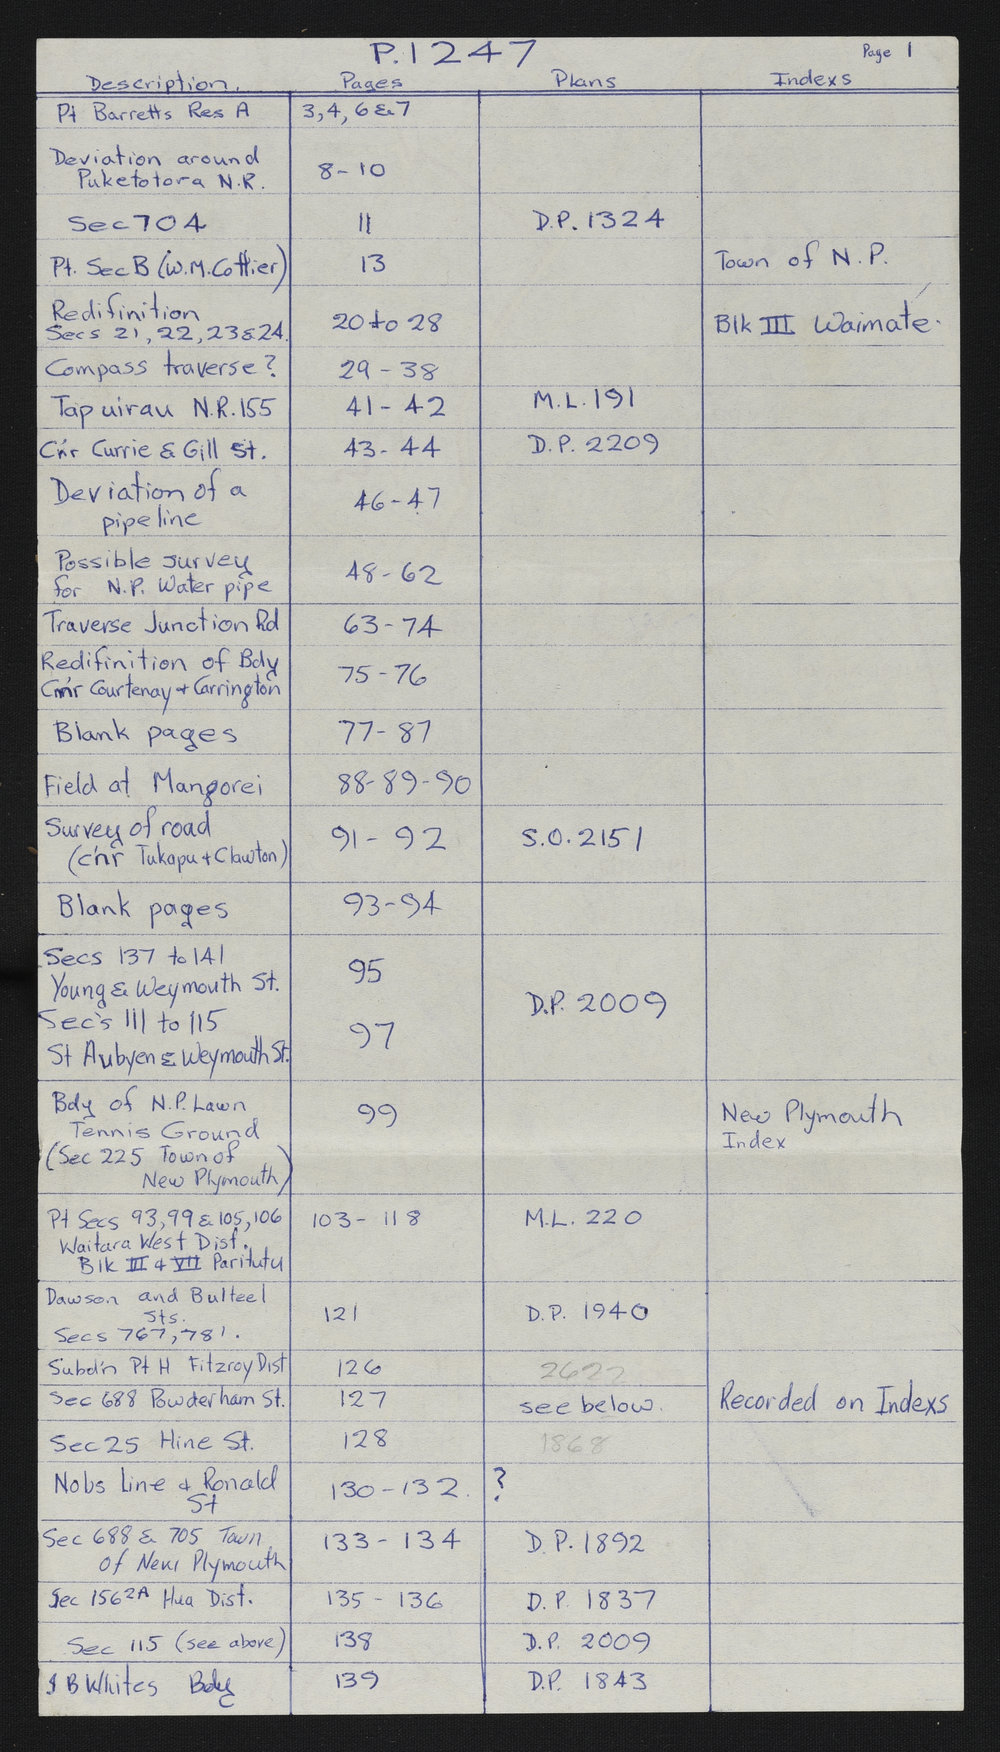 P.1247 Page 1
Description. Pages Plans Indexs
Pt Barretts Res A 3,4, 6 & 7
Deviation around
Puketotora N.R. 8-10
Sec 704 11 D.P. 1324
Pt. Sec B (W.M. Cottier) 13 Town of N.P.
Redifinition
Secs 21, 22, 23 & 24. 20 to 28 Blk III Waimate.
Compass traverse? 29-38
Tapuirau N.R. 155 41-42 M.L. 191
C'nr Currie & Gill St. 43-44 D.P. 2209
Deviation of a
pipeline 46-47
Possible survey
for N.P. Water pipe 48-62
Traverse Junction Rd 63-74
Redifinition of Bdy
Cnr Courtenay + Carrington 75-76
Blank pages 77-87
Field at Mangorei 88-89-90
Survey of road
(c'nr Tukapu + Clawton) 91-92 S.O. 2151
Blank pages 93-94
Secs 137 to 141
Young & Weymouth St. 95
D.P. 2009
Sec's 111 to 115
St Aubyen & Weymouth St. 97
Bdy of N.P. Lawn 99 New Plymouth
Tennis Ground Index
(Sec 225 Town of
New Plymouth)
Pt Secs 93, 99 & 105, 106 103-118 M.L. 220
Waitara West Dist.
Blk III & VII Paritutu
Dawson and Bulteel
Sts. 121 D.P. 1940
Secs 767, 781.
Subd'n Pt H Fitzroy Dist 126 2622
Sec 688 Powderham St. 127 see below. Recorded on Indexs
Sec 25 Hine St. 128 1868
Nobs Line & Ronald
St 130-132. ?
Sec 688 & 705 Town
of New Plymouth 133-134 D.P. 1892
Sec 156 2A Hua Dist. 135-136 D.P. 1837
Sec 115 (see above) 138 D.P. 2009
J B Whites Bdy 139 D.P. 1843